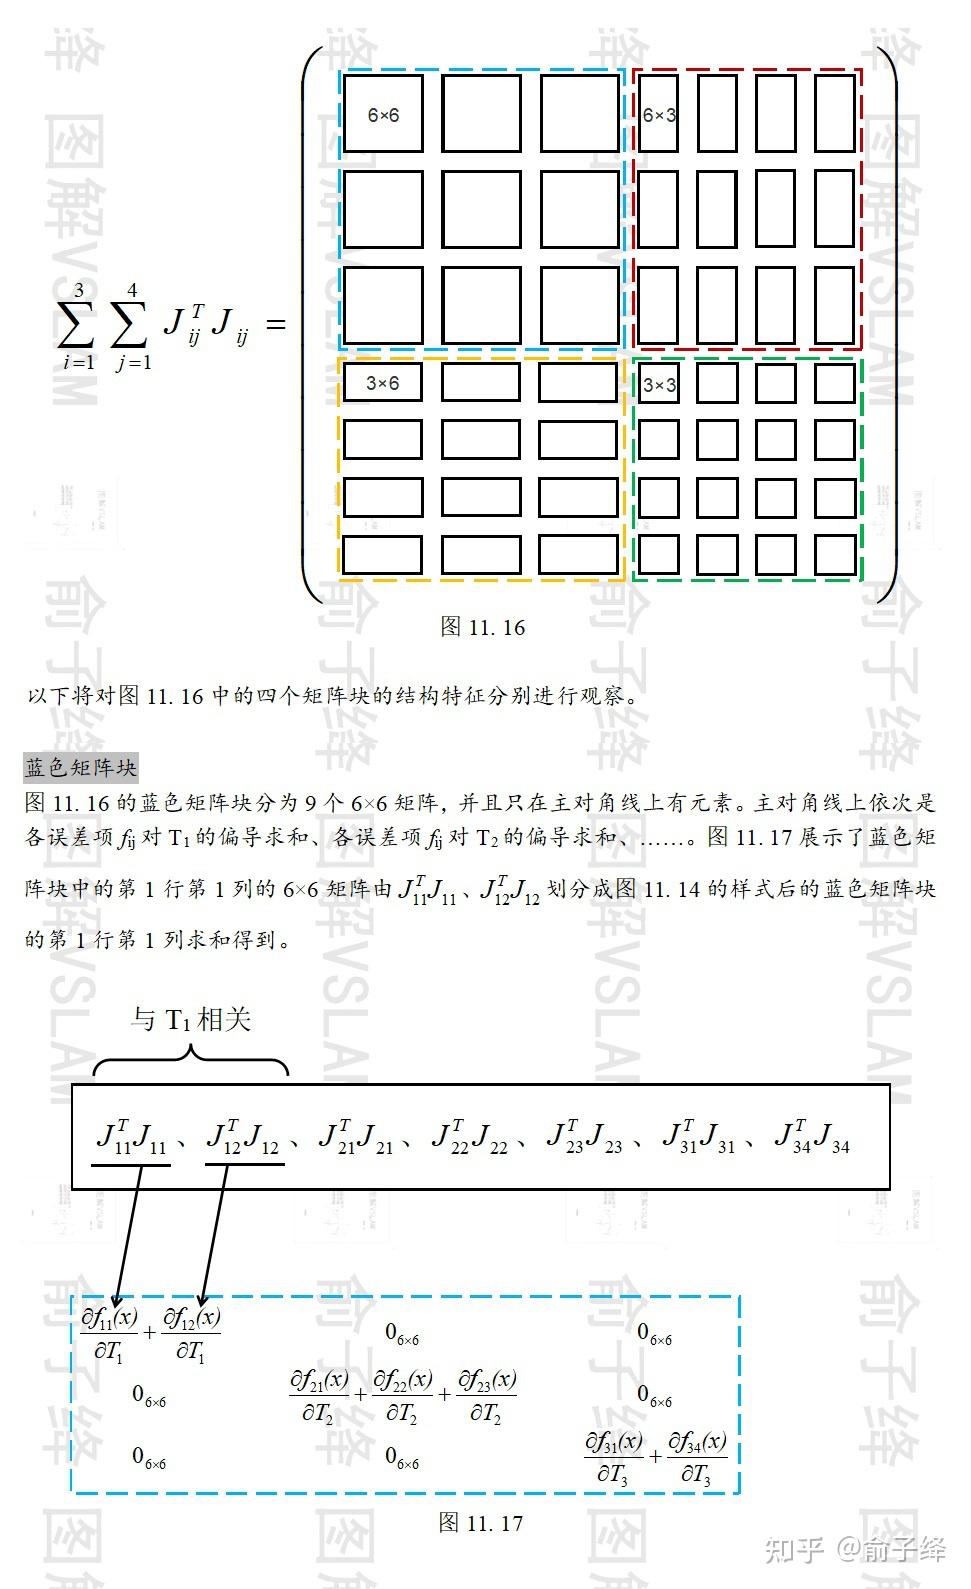 6×6 6×3
3×6 3×3
\sum_{i=1}^{3} \sum_{j=1}^{4} J_{ij}^T J_{ij} =
图 11. 16
以下将对图 11. 16 中的四个矩阵块的结构特征分别进行观察。
蓝色矩阵块
图 11. 16 的蓝色矩阵块分为 9 个 6×6 矩阵，并且只在主对角线上有元素。主对角线上依次是
各误差项 f_{ij} 对 T_1 的偏导求和、各误差项 f_{ij} 对 T_2 的偏导求和、……。图 11. 17 展示了蓝色矩
阵块中的第 1 行第 1 列的 6×6 矩阵由 J_{11}^T J_{11}、J_{12}^T J_{12} 划分成图 11. 14 的样式后的蓝色矩阵块
的第 1 行第 1 列求和得到。
与 T_1 相关
J_{11}^T J_{11}、J_{12}^T J_{12}、J_{21}^T J_{21}、J_{22}^T J_{22}、J_{23}^T J_{23}、J_{31}^T J_{31}、J_{34}^T J_{34}
\frac{∂f_{11}(x)}{∂T_1} + \frac{∂f_{12}(x)}{∂T_1} 0_{6×6} 0_{6×6}
0_{6×6} \frac{∂f_{21}(x)}{∂T_2} + \frac{∂f_{22}(x)}{∂T_2} + \frac{∂f_{23}(x)}{∂T_2} 0_{6×6}
0_{6×6} 0_{6×6} \frac{∂f_{31}(x)}{∂T_3} + \frac{∂f_{34}(x)}{∂T_3}
图 11. 17
知乎 @俞子绎
图解VSLAM
俞子绎